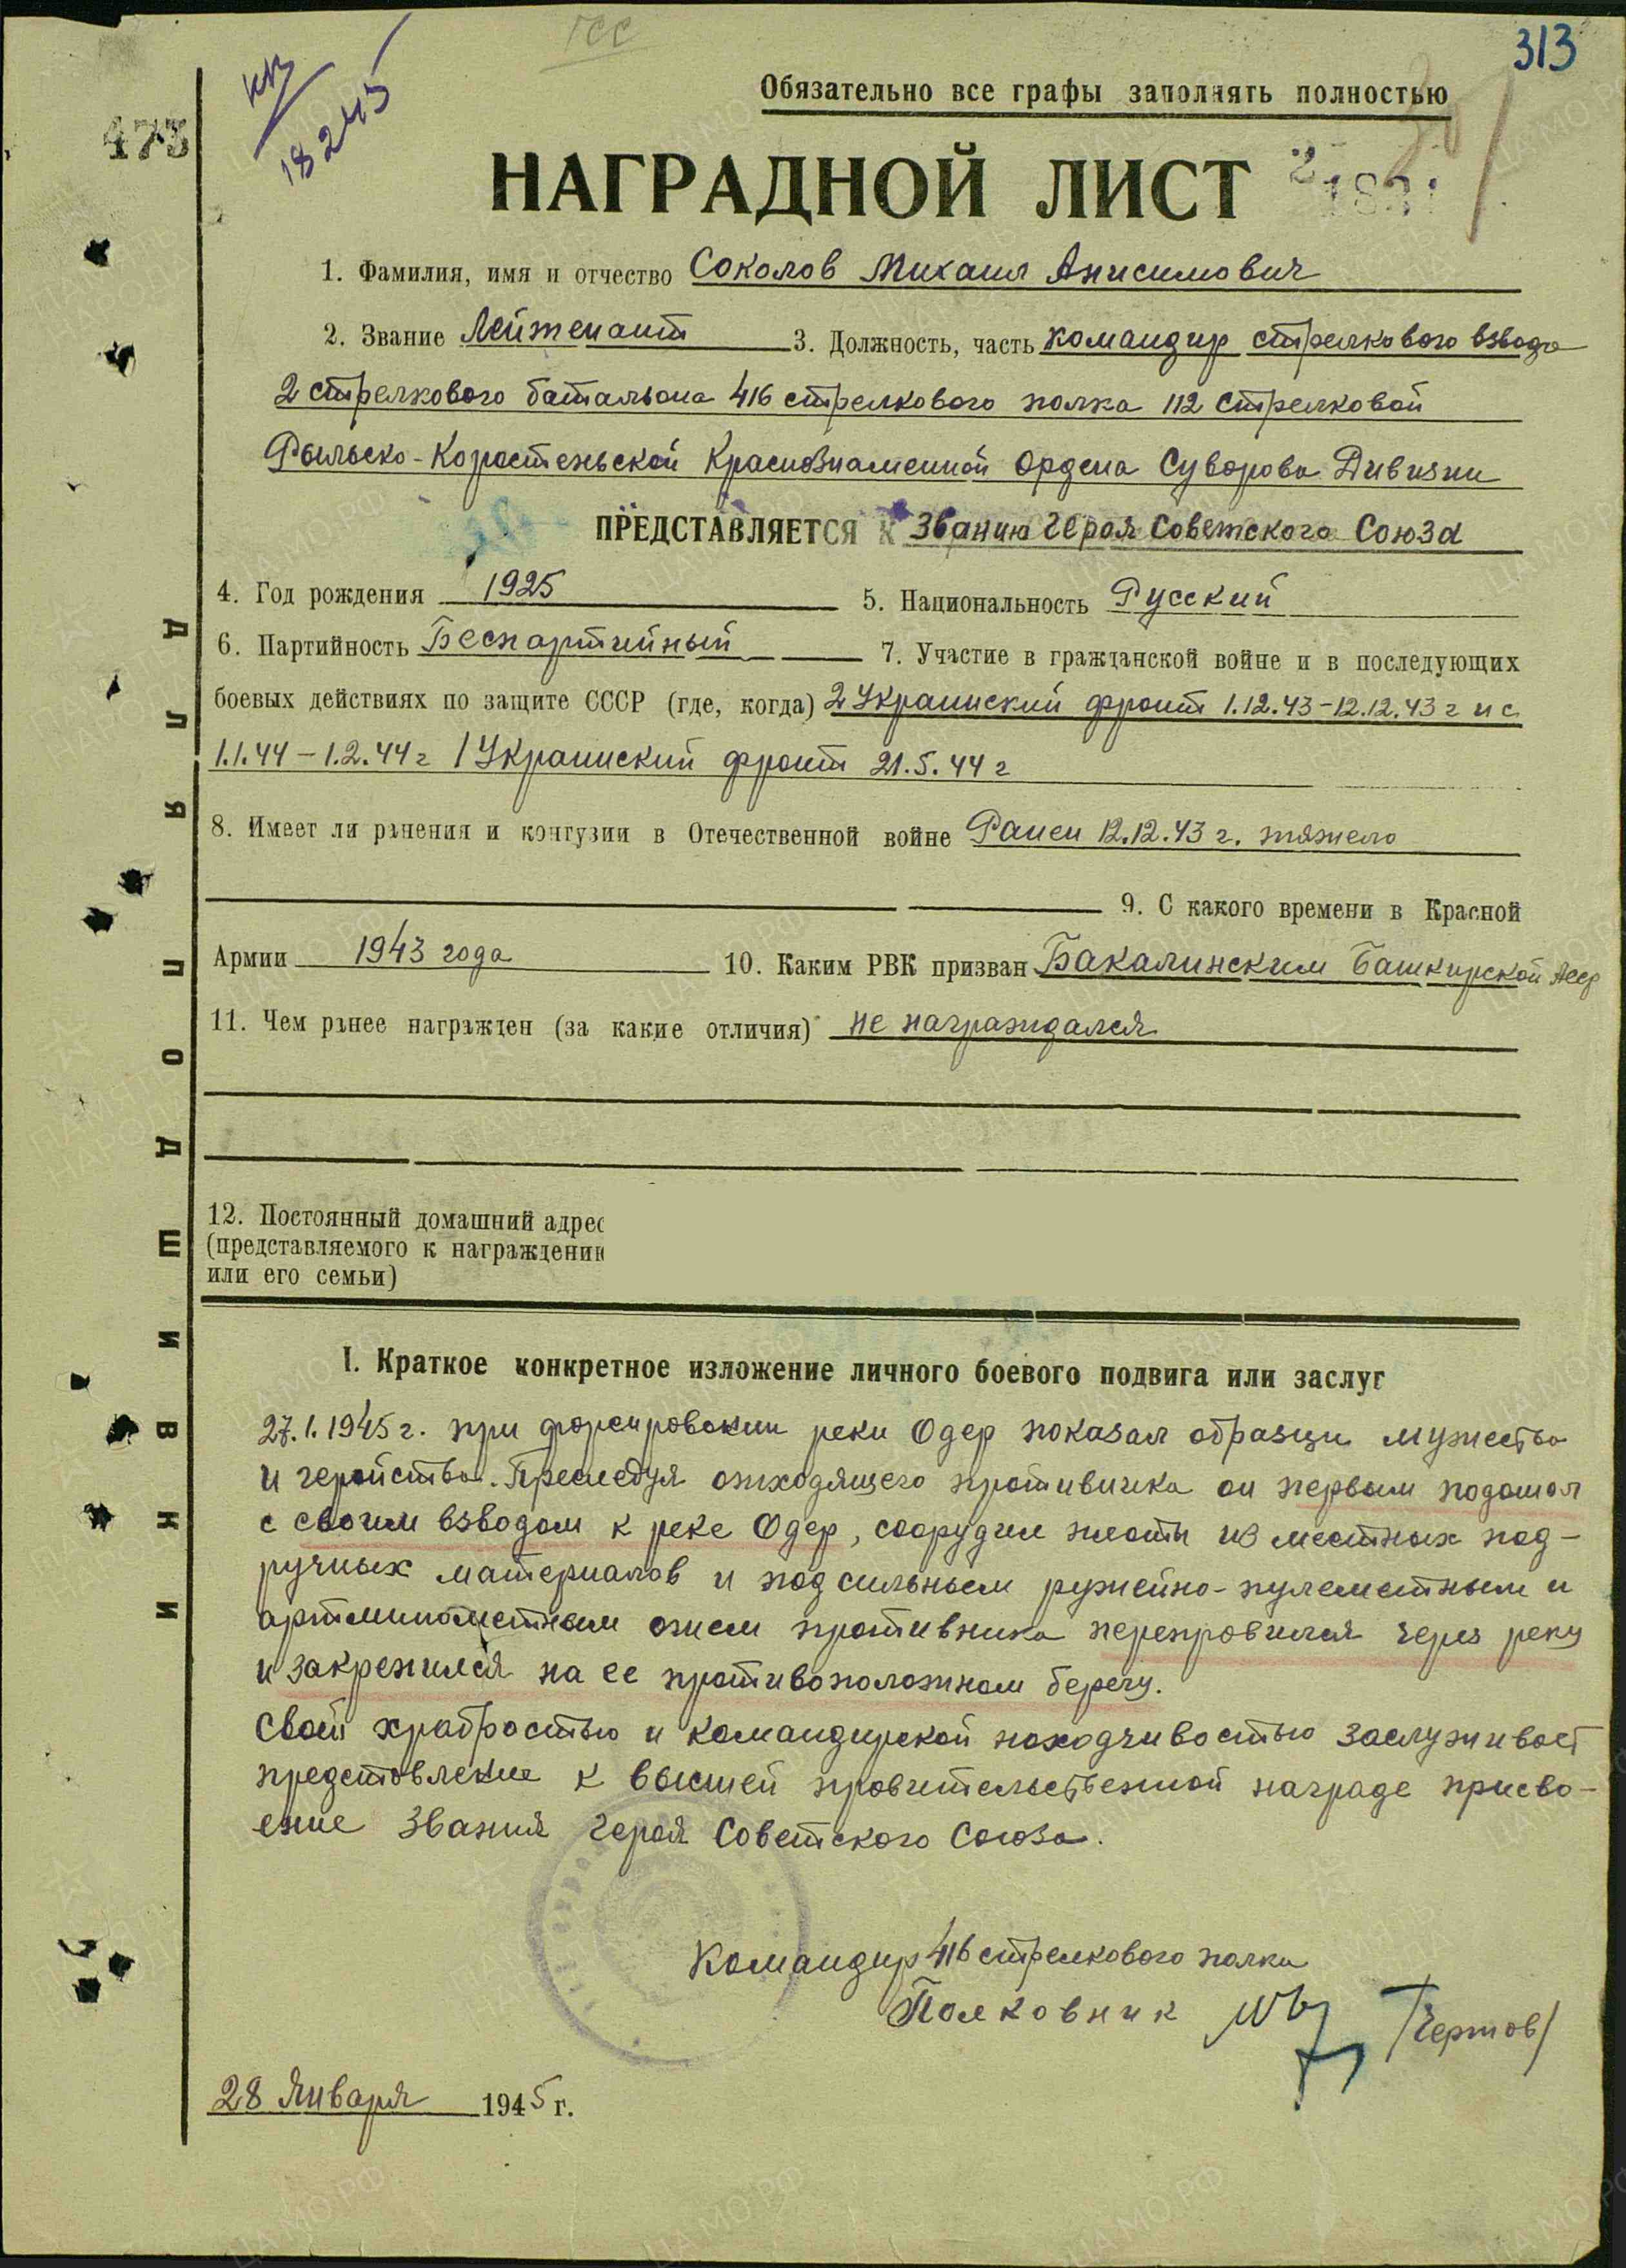 ГСС
313
КП
18245
473
Обязательно все графы заполнять полностью
НАГРАДНОЙ ЛИСТ
1. Фамилия, имя и отчество Соколов Михаил Анисимович
2. Звание Лейтенант 3. Должность, часть командир стрелкового взвода
2 стрелкового батальона 416 стрелкового полка 112 стрелковой
Рыльско-Коростеньской Краснознаменной Ордена Суворова Дивизии
ПРЕДСТАВЛЯЕТСЯ К Званию Героя Советского Союза
4. Год рождения 1925 5. Национальность Русский
6. Партийность Беспартийный 7. Участие в гражданской войне и в последующих
боевых действиях по защите СССР (где, когда) 2 Украинский фронт 1.12.43-12.12.43 г и с
1.1.44 - 1.2.44 г 1 Украинский фронт 21.5.44 г
8. Имеет ли ранения и контузии в Отечественной войне Ранен 12.12.43 г. тяжело
9. С какого времени в Красной
Армии 1943 года 10. Каким РВК призван Бакалинским Башкирской Асср
11. Чем ранее награжден (за какие отличия) не награждался
12. Постоянный домашний адрес
(представляемого к награждению
или его семьи)
ДЛЯ ПОДШИВКИ
I. Краткое конкретное изложение личного боевого подвига или заслуг
27.1.1945 г. при форсировании реки Одер показал образцы мужества
и геройства. Преследуя отходящего противника он первым подошол
с своим взводом к реке Одер, соорудил плоты из местных под-
ручных материалов и под сильным ружейно-пулеметным и
артминометным огнем противника переправился через реку
и закрепился на ее противоположном берегу.
Своей храбростью и командирской находчивостью заслуживает
представление к высшей правительственной награде присво-
ение звания Героя Советского Союза.
Командир 416 стрелкового полка
Полковник /Чертов/
28 Января 1945 г.